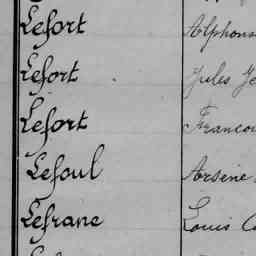 Lefort Alphons
Lefort Jules Je
Lefort Francoi
Lefoul Arsène
Lefranc Louis